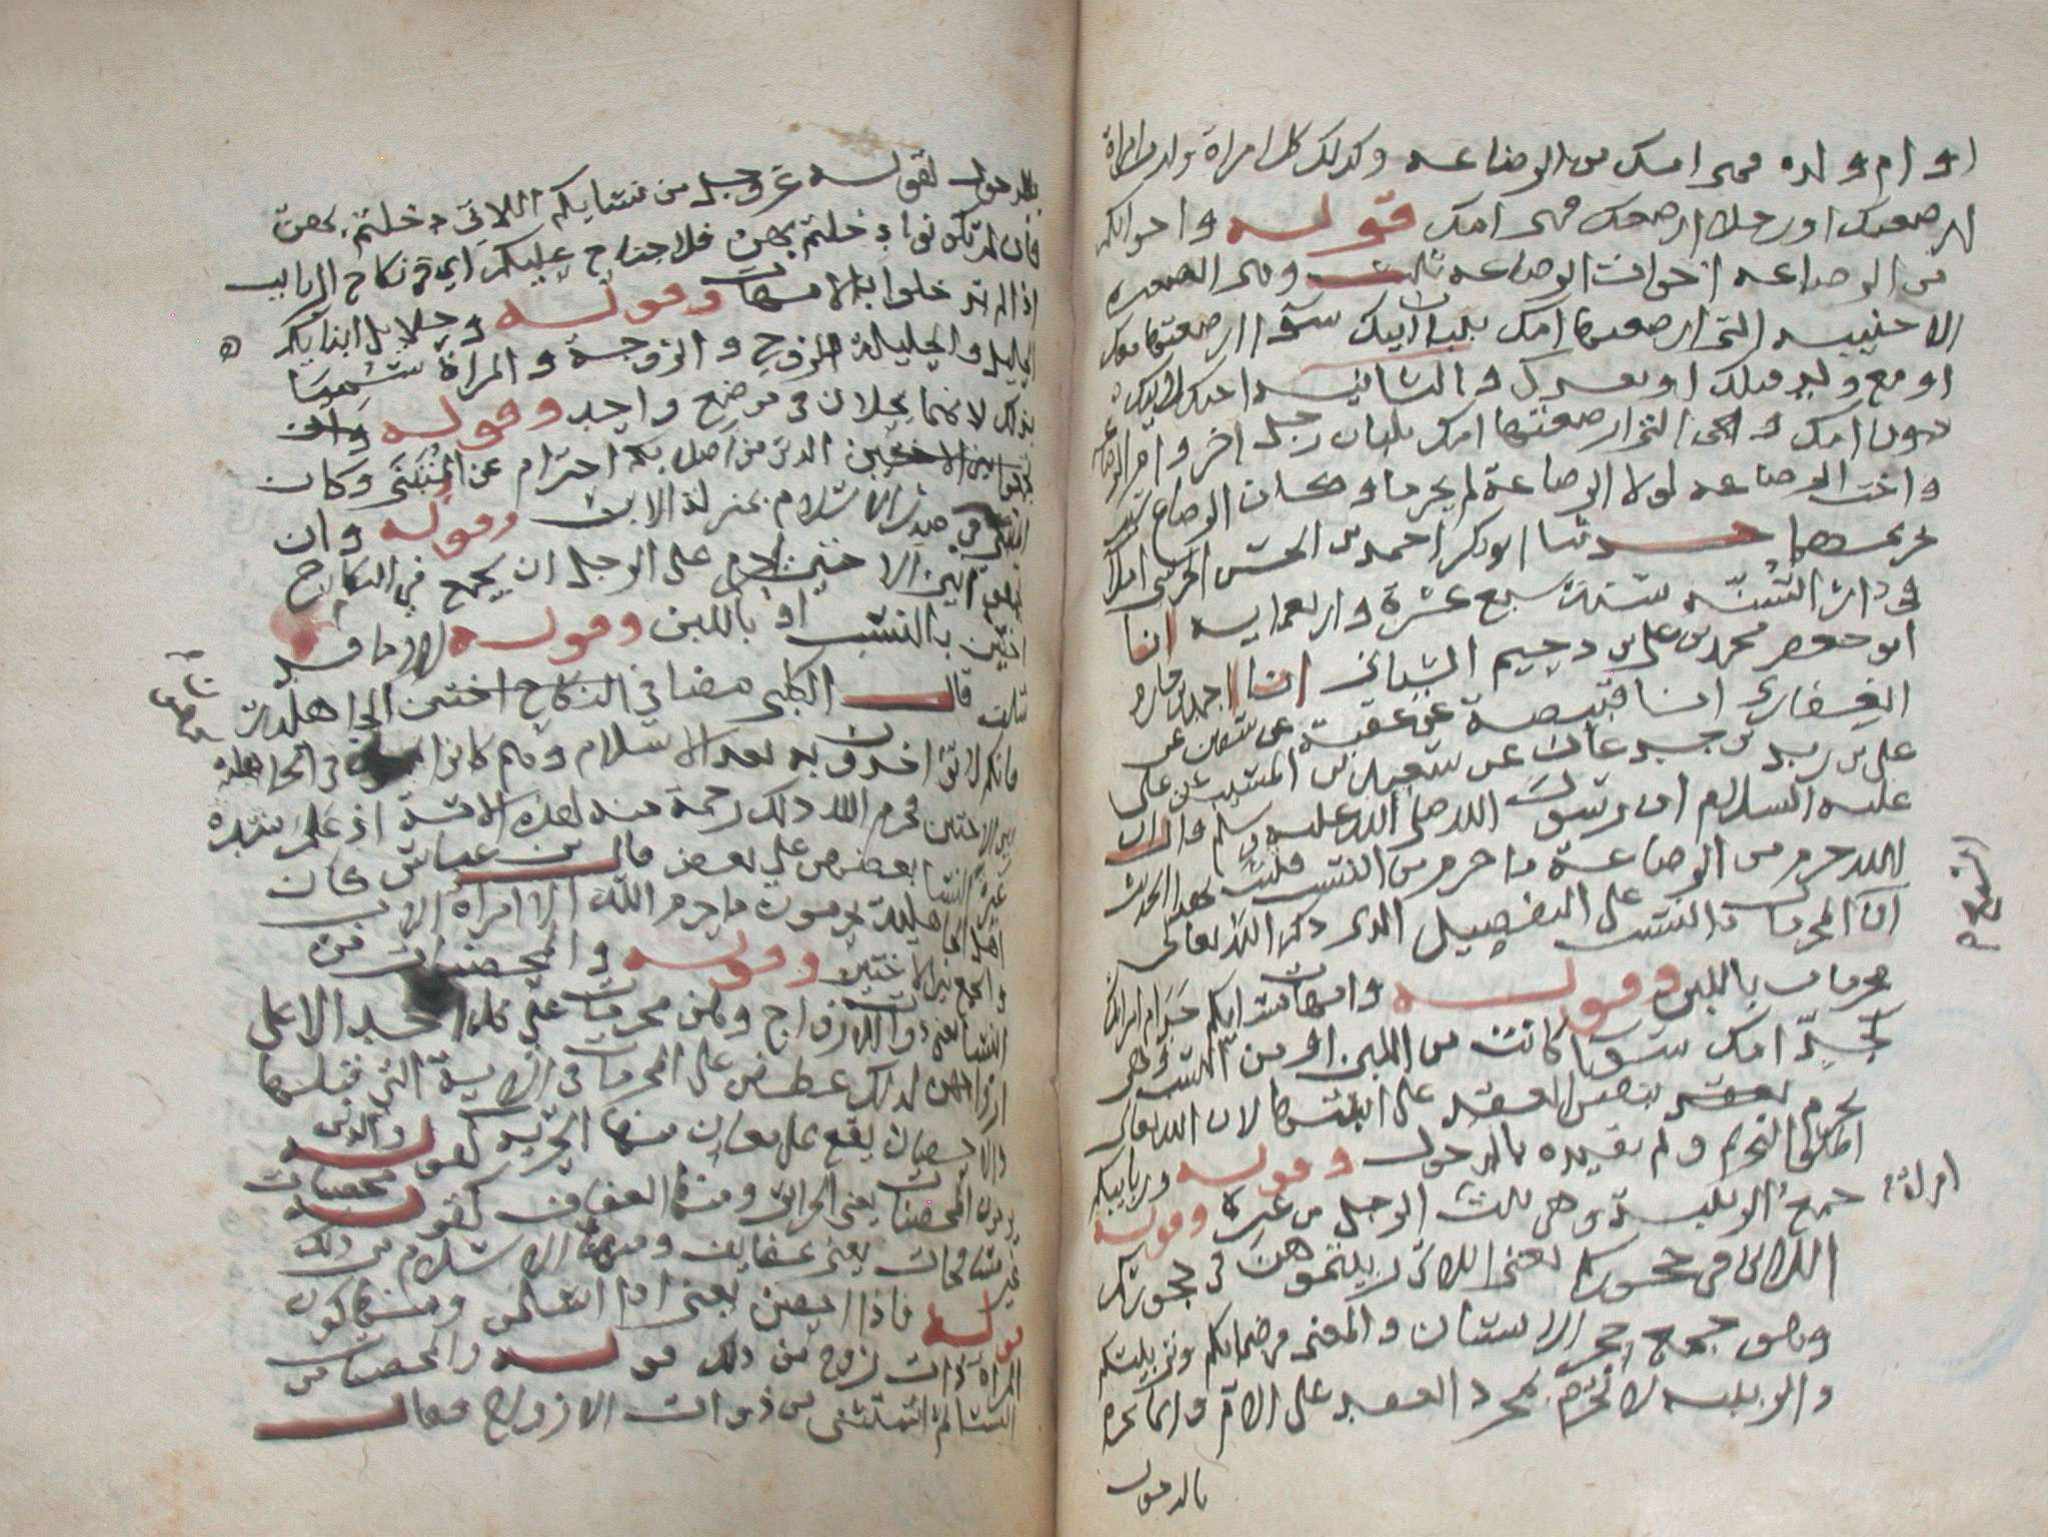 او ام ولده فهي امك من الرضاعه وكذلك كل امراة ولدت امراة
ارضعتك او رجلا ارضعك فهي امك قوله واخواتكم
من الرضاعه اخوات الرضاعه ثلث وهي الصغيره
الاجنبيه التي ارضعتها امك بلبان ابيك سوآ ارضعتها معك
او مع ولد قبلك او بعدك والثانيه اختك لابيك
دون امك وهي التي ارضعتها امك بلبان رجل اخر وام الرضاعه
واخت الرضاعه لولا الرضاعة لم يحرما وكان الرضاع سبب
تحريمهما حدثنا ابو بكر احمد بن الحسن الحرشي املا
في دار السنه سنة سبع عشرة واربعمايه انا
ابو جعفر محمد بن علي بن دحيم الشيباني انا احمد بن حازم
الغفاري انا قبيصة عن عقبة عن سفين عن
علي بن زيد بن جدعان عن سعيد بن المسيب عن علي
عليه السلام ان رسول الله صلى الله عليه وسلم قال ان
الله حرم من الرضاعة ما حرم من النسب فثبت بهذا الحديث
ان المحرمات بالنسب على التفصيل الذي ذكره الله تعالى
محرمات باللبن وقوله وامهات نسايكم حرام
امك سوآ كانت من اللبن او من النسب وهي
تحرم بنفس العقد على ابنتها لان الله تعالى
اطلق التحريم ولم يقيده بالدخول وقوله وربايبكم
جمع الربيبة وهي بنت امراة الرجل من غيره وقوله
اللاتي في حجوركم يعني اللاتي ربيتموهن في حجوركم
وهو جمع حجر الانسان والمعنى في ضمانكم وتربيتكم
والربيبه لا تحرم بمجرد العقد على الام وانما تحرم
بالدخول
بالدخول لقوله عز وجل من نسايكم اللاتي دخلتم بهن
فان لم تكونوا دخلتم بهن فلا جناح عليكم اي في نكاح الربايب
اذا لم تدخلوا بالامهات وقوله وحلايل ابنايكم
الحليل والحليلة الزوج والزوجة والمراة سميتا
بذلك لانهما يحلان في موضع واحد وقوله
الذين من اصلابكم احترام عن المتبنى وكان
المتبني في صدر الاسلام بمنزلة الابن وقوله وان
تجمعوا بين الاختين حرام على الرجل ان يجمع في النكاح
اختين بالنسب او باللبن وقوله الا ما قد
سلف قال الكلبي مضا في النكاح اختين الجاهلية
فانكم لا تواخذون به بعد الاسلام وهم كانوا في الجاهلة
بين الاختين فحرم الله ذلك رحمة منه لهذه الامة اذ علم شدة
غيرة النسا بعضهن علي بعض قال بن عباس كان
اهل الجاهلية يحرمون ما حرم الله الا امراة الاب
والجمع بين الاختين وقوله والمحصنات من
النسا يعني ذوات الازواج وهن محرمات على كل احد الا على
ازواجهن لذلك عطفن على المحرمات في الاية التي قبلها
والاحصان يقع على معان منها الحرية كقوله والذين
يرمون المحصنات يعني الحراير ومنها العفاف كقوله محصنات
غير مسافحات يعني عفايف ومنها الاسلام من ذلك
قوله فاذا احصن يعني اذا اسلمن ومنها كون
المراة ذات زوج من ذلك قوله والمحصنات من
النسا ثم استثنى من ذوات الازواج فقال